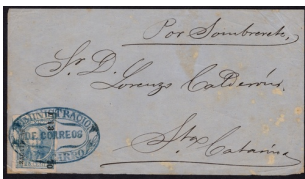 Por Sombrerete,
Sr. D.
Lorenzo Calderón,
Sta Catarina
ADMINISTRACION
DE CORREOS